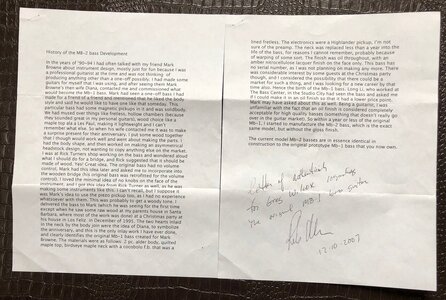 History of the MB-2 bass Development
In the years of '90-94 I had often talked with my friend Mark
Browne about instrument design, mostly just for fun because I was
a professional guitarist at the time and was not thinking of
producing anything other than a one-off possibly; I had made some
guitars for myself that I was using, and after seeing them Mark
Browne's then wife Diana, contacted me and commissioned what
would become the MB-1 bass. Mark had seen a one-off bass I had
made for a friend of mine and had mentioned that he liked the body
style and said he would like to have one like that someday. This
particular bass had some magnetic pickups in it and was solidbody.
We had mused over things like fretless, hollow chambers (because
may
wooden top also) and how making it lightweight and I don't
remember what else. So when his wife contacted me it was to make
a surprise present for their anniversary. I put some wood together
that I though would work and went about making the prototype. I
had the body shape, and then worked on making an asymmetrical
headstock design, not wanting to copy anything else on the market.
I was at Rick Turners shop working on the bass and wondered aloud
what I should do for a bridge, and Rick suggested that it should be
made of wood. Yes! Great idea. The original bass had no volume
control, Mark had this idea later and asked me to incorporate into
the wooden bridge
control). I loved the minimal idea of no knobs on the face of the
instrument, and I got this idea from Rick Turner as well, as he was
making some instruments like this. I can't recall, but I suppose it
was Mark's idea to use the piezo pickup too, as I had no experience
whatsoever with them. This was probably to get a woody tone. I
delivered the bass to Mark (which he was seeing for the first time
except when he saw some raw wood at my parents house in Santa
Barbara, where most of the work was done) at a Christmas party at
his house in Los Feliz, in December of 1993. The two hearts inlaid
to the neck by the body joint were the idea of Diana, to symbolize
the anniversary, and this is the only inlay work I have ever done,
and clearly identifies the original MB-1 bass created for Mark
Browne. The materials were as follows: 2 pc. alder body, quilted
maple top, birdseye maple neck with a cocobolo f.b. that was a
lined fretless. The electronics were a Highlander pickup, I'm not
sure of the preamp. The neck was replaced less than a year into the
life of the bass, for reasons I cannot remember, probably because
of warping of some sort. The finish was oil throughout, with an
amber nitrocellulose lacquer finish on the face only. This bass had
no serial number, as I was not planning on making any more. There
was considerable interest by some guests at the Christmas party
though, and I considered the possibility that there could be a
market for such a thing, and I was looking for a new career by that
time also. Hence the birth of the MB-1 bass. Long Li, who worked at
The Bass Center, in the Studio City had seen the bass and asked me
if I could make it in an oil finish so that it had a lower price point.
Mark may have asked about this as well. Being a guitarist, I was
unfamiliar with the fact that an oil finish is considered completely
acceptable for high quality basses (something that doesn't really go
over in the guitar market). So within a year or less of the original
MB-1, I started to manufacture the MB-2 bass, which is the exact
same model, but without the gloss finish.
The current model MB-2 basses are in essence identical in
construction to the original prototype MB-1 bass that you now own.
Letter of authenticity
for
the original MB-1
12-10-2007